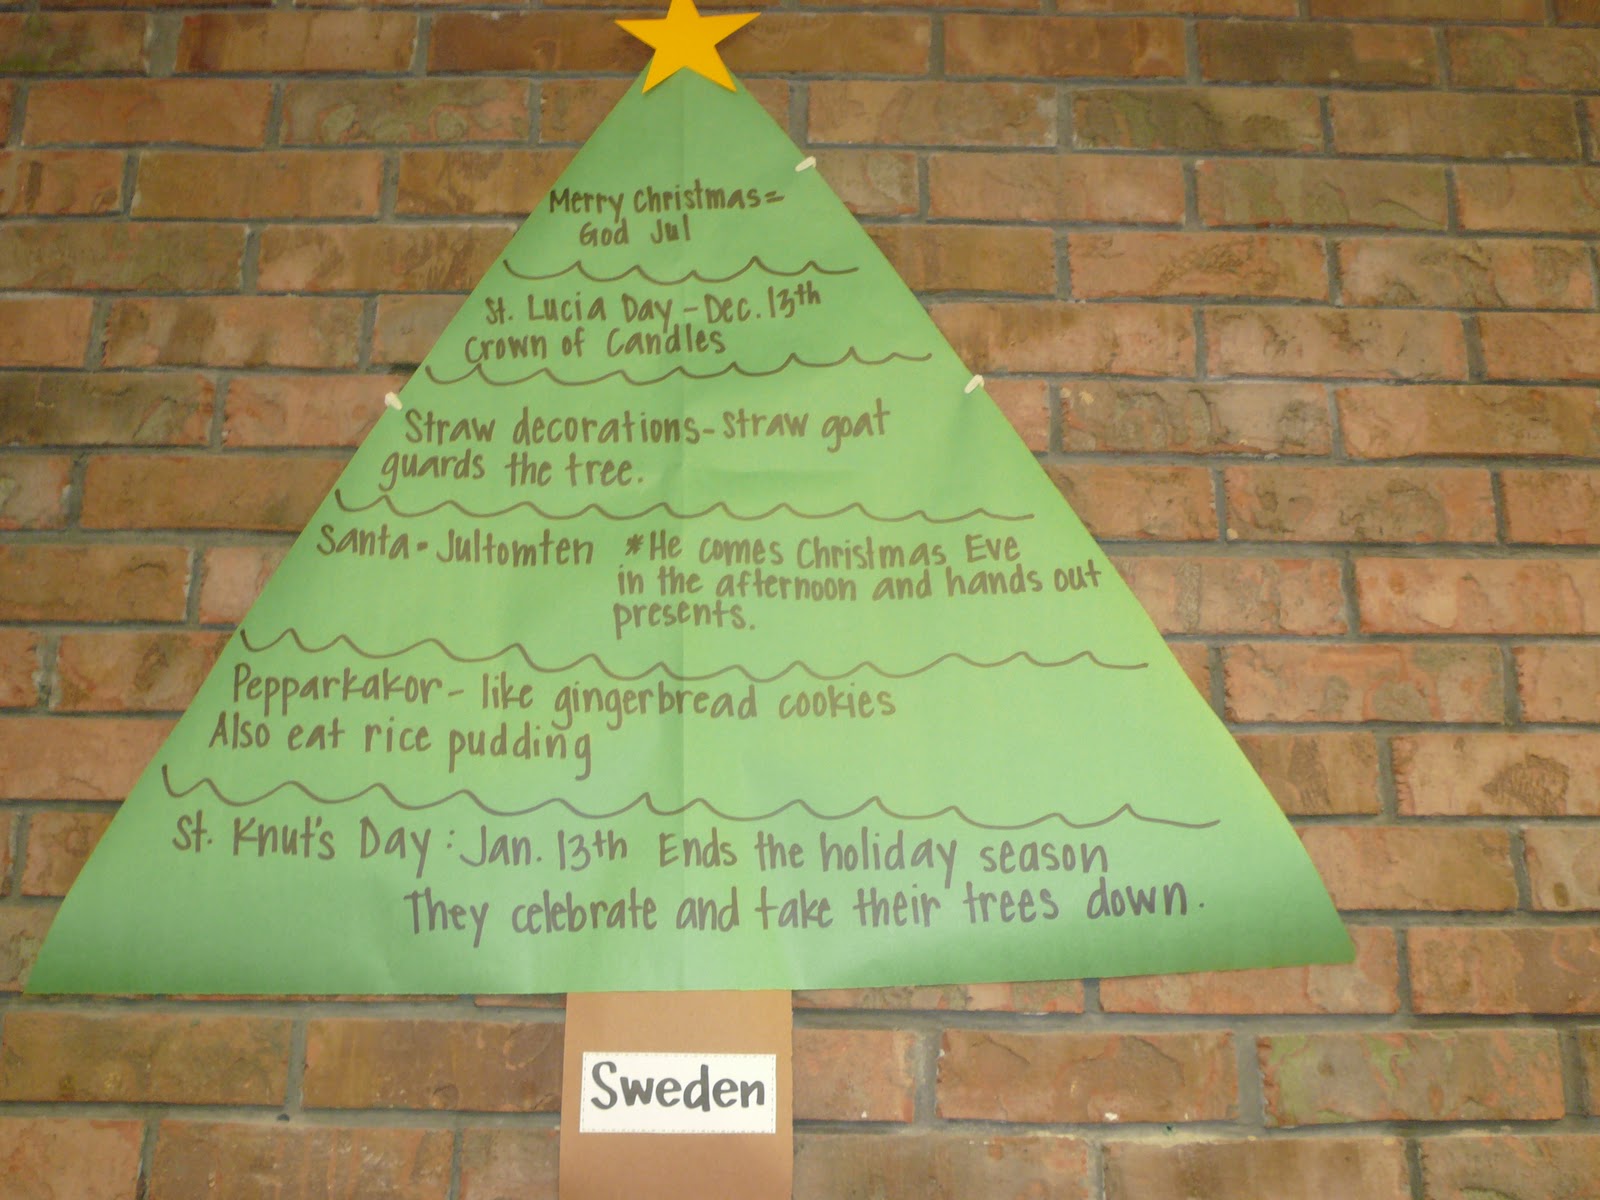 Merry Christmas=
God Jul
St. Lucia Day - Dec. 13th
Crown of Candles
Straw decorations - Straw goat
guards the tree.
Santa = Jultomten *He comes Christmas Eve
in the afternoon and hands out
presents.
Pepparkakor - like gingerbread cookies
Also eat rice pudding
St. Knut's Day : Jan. 13th Ends the holiday season
They celebrate and take their trees down.
Sweden